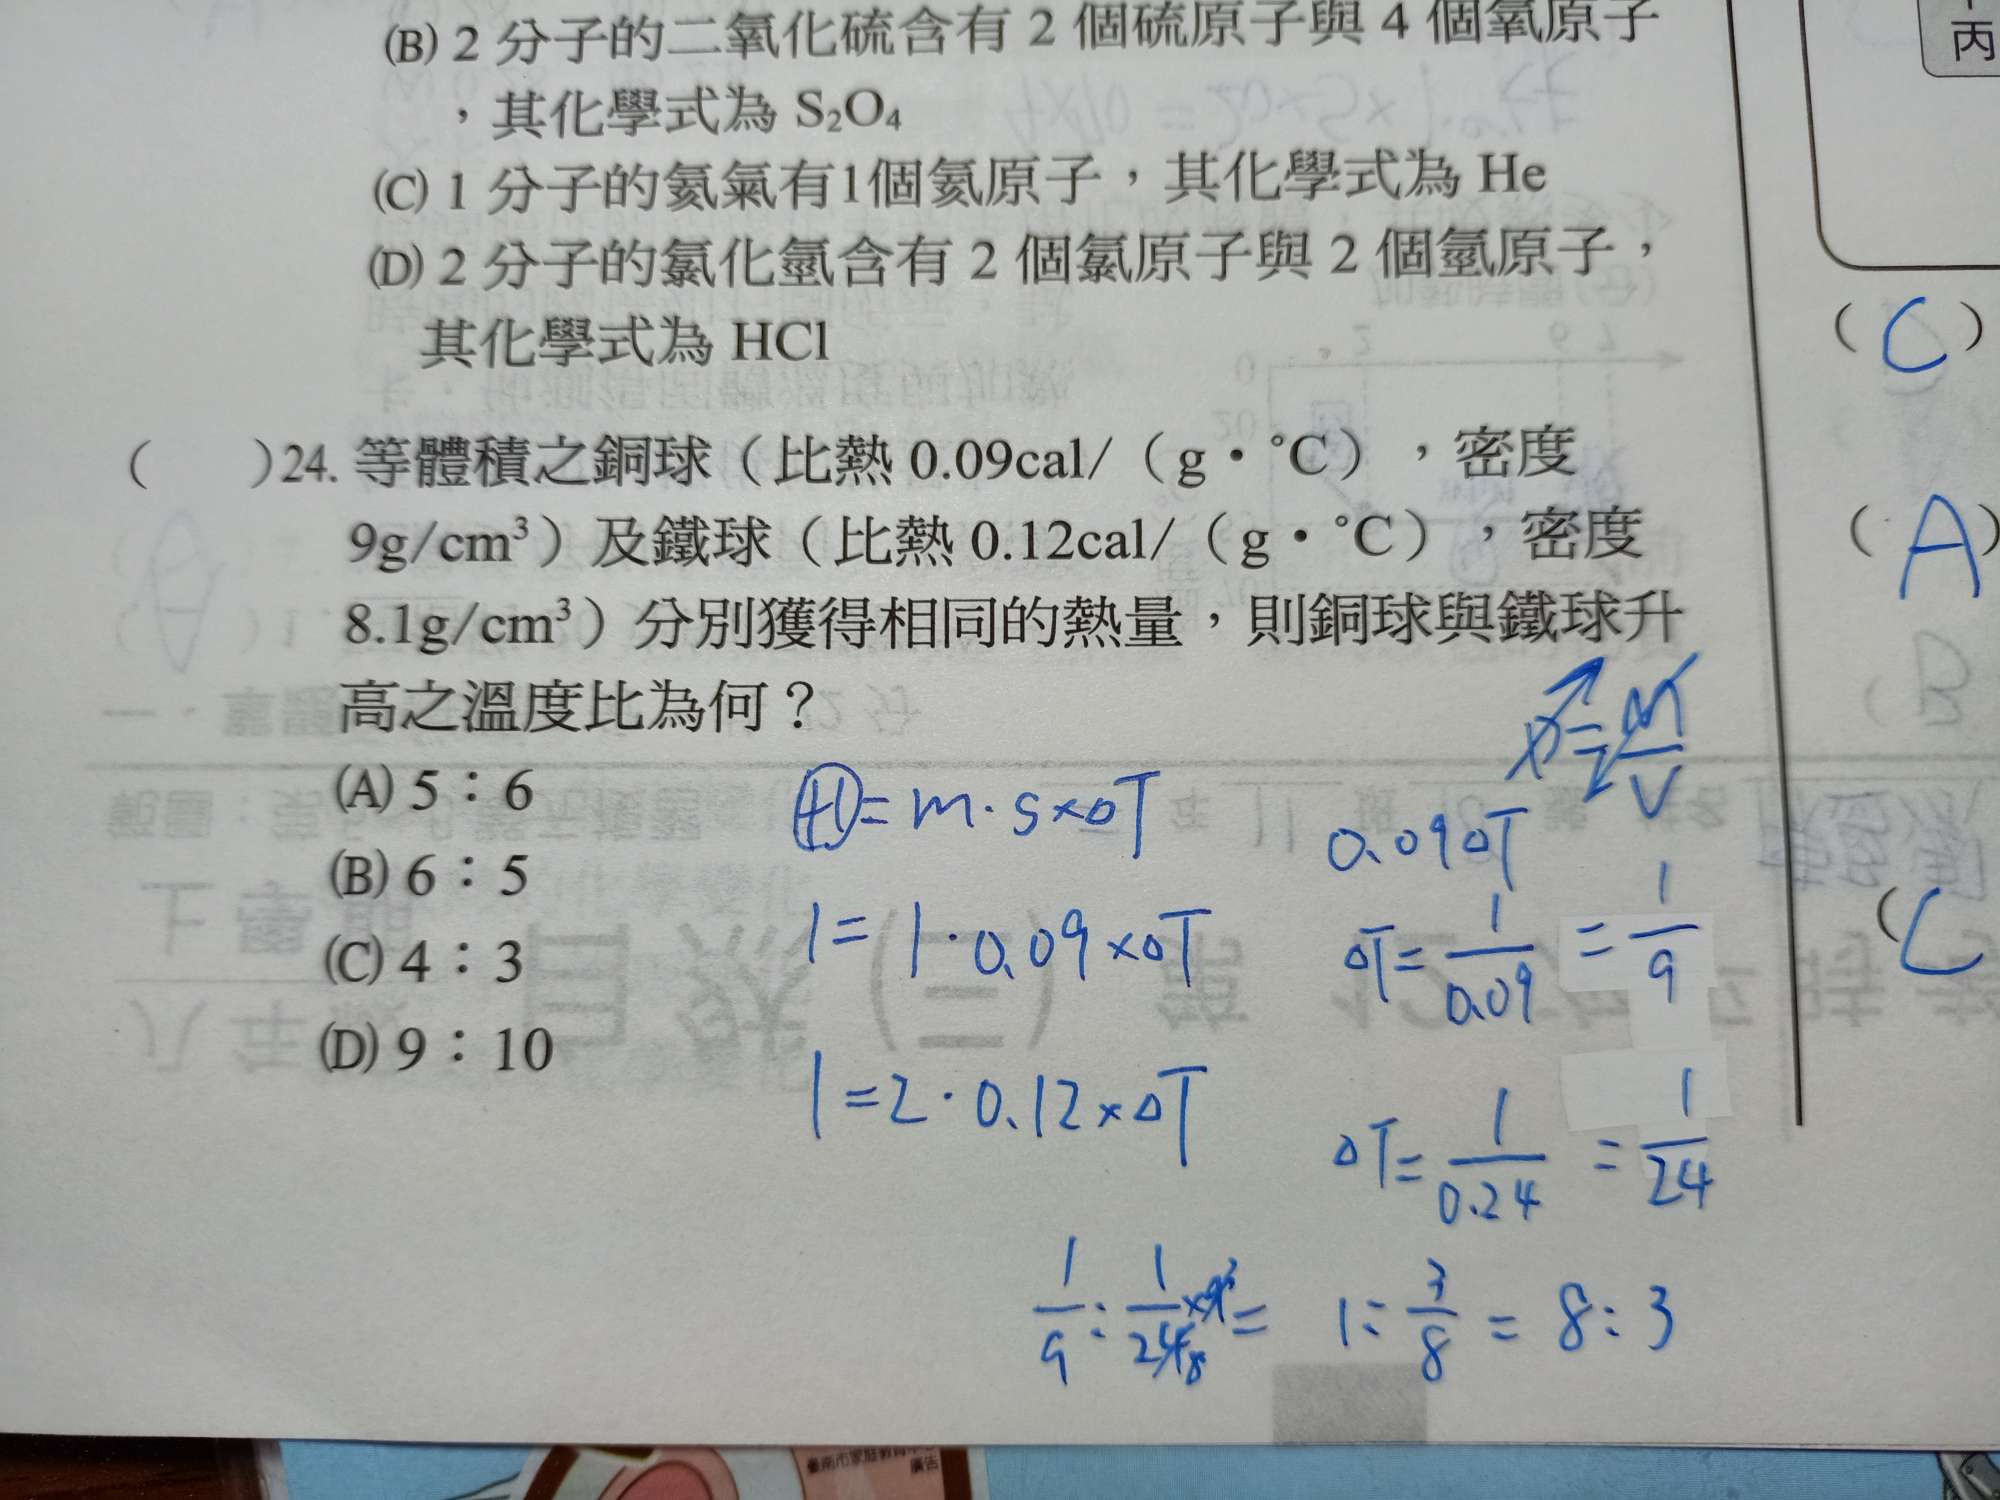 (B) 2 分子的二氧化硫含有 2 個硫原子與 4 個氧原子
，其化學式為 S₂O₄
(C) 1 分子的氦氣有1個氦原子，其化學式為 He
(D) 2 分子的氯化氫含有 2 個氯原子與 2 個氫原子，
其化學式為 HCl
(　　)24. 等體積之銅球（比熱 0.09cal/（g・°C），密度
9g/cm³）及鐵球（比熱 0.12cal/（g・°C），密度
8.1g/cm³）分別獲得相同的熱量，則銅球與鐵球升
高之溫度比為何？
(A) 5：6
(B) 6：5
(C) 4：3
(D) 9：10
D=M/V
H=m·s×△T
0.09△T
1=1·0.09×△T
△T=1/0.09=1/9
1=2·0.12×△T
△T=1/0.24=1/24
1/9:1/24×9= 1:3/8=8:3
丙
(C)
(A)
(C
臺南市家庭教育中心
廣告